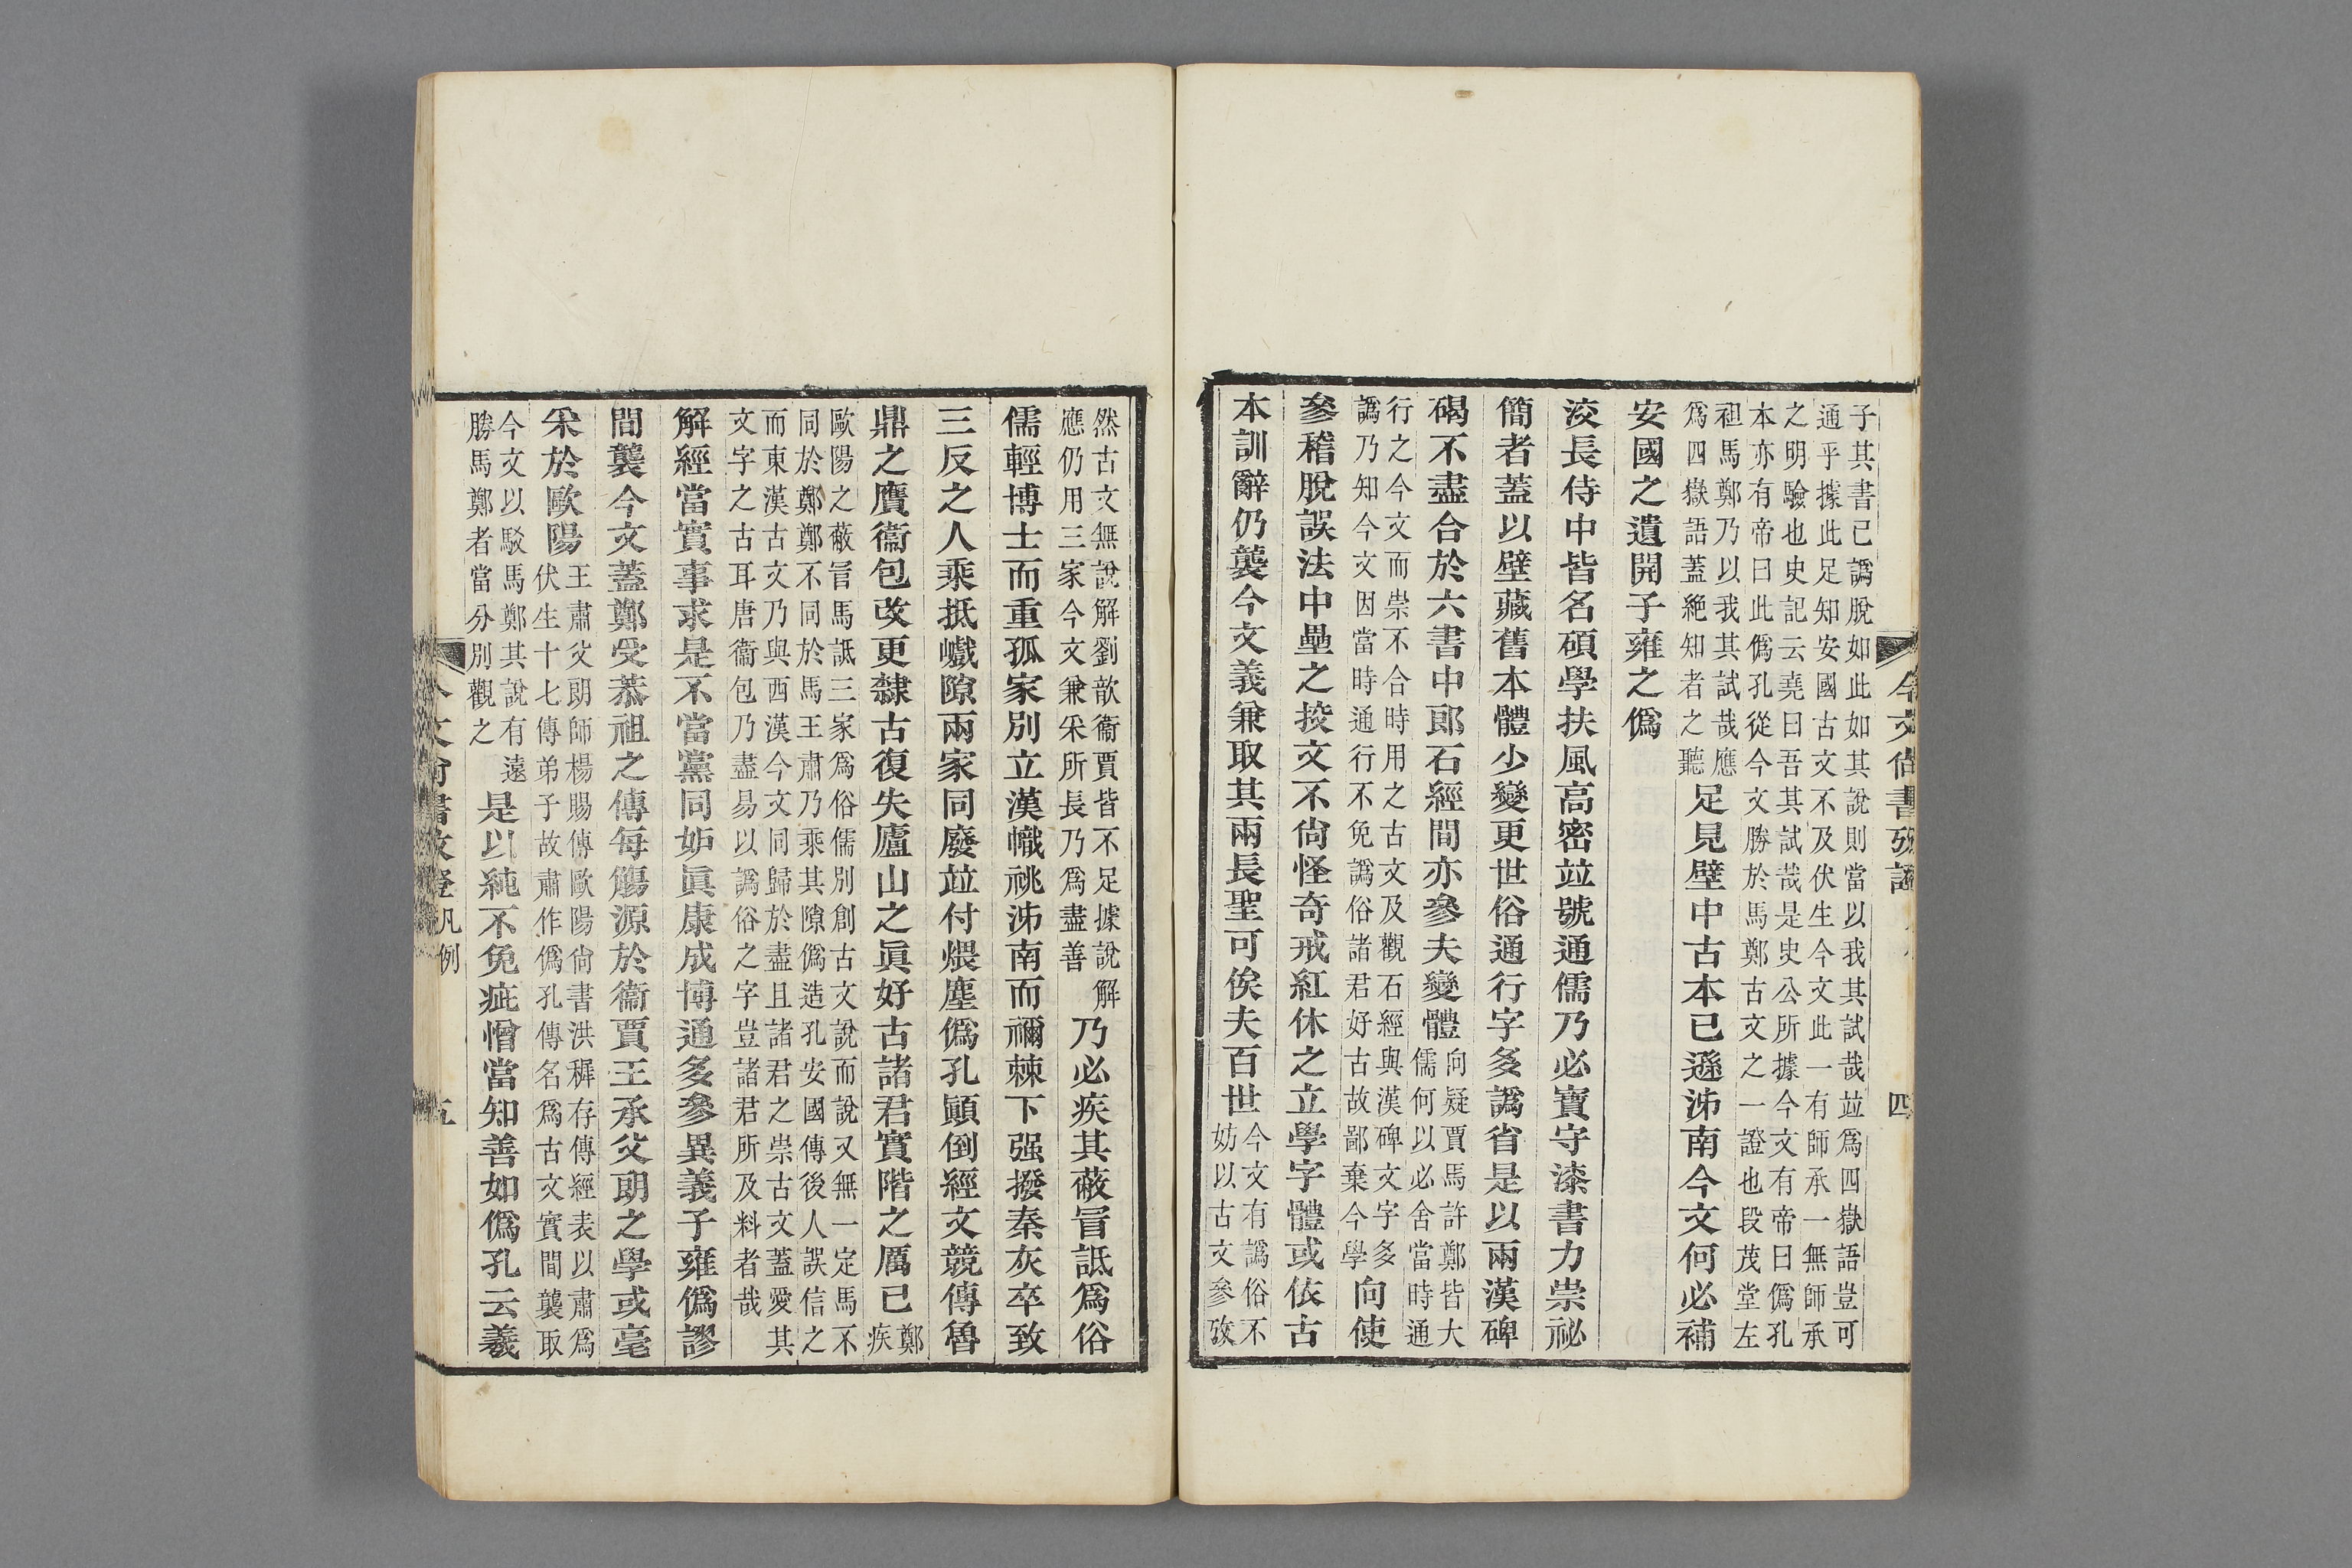 今文尚書攷證
四
子其書已譌脫如此如其說則當以我其試哉竝爲四嶽語豈可
通乎據此足知安國古文不及伏生今文此一有師承一無師承
之明驗也史記云堯曰吾其試哉是史公所據今文有帝曰僞孔
本亦有帝曰此僞孔從今文勝於馬鄭古文之一證也段茂堂左
祖馬鄭乃以我其試哉應
爲四嶽語蓋絶知者之聽
足見壁中古本已遜泲南今文何必補
安國之遺開子雍之僞
洨長侍中皆名碩學扶風高密竝號通儒乃必寶守漆書力崇祕
簡者蓋以壁藏舊本體少變更世俗通行字多譌省是以兩漢碑
碣不盡合於六書中郎石經間亦參夫變體
向疑賈馬許鄭皆大
儒何以必舍當時通
行之今文而崇不合時用之古文及觀石經與漢碑文字多
譌乃知今文因當時通行不免譌俗諸君好古故鄙棄今學
向使
參稽脫誤法中壘之挍文不尙怪奇戒紅休之立學字體或依古
本訓辭仍襲今文義兼取其兩長聖可俟夫百世
今文有譌俗不
妨以古文參攷
然古文無說解劉歆衞賈皆不足據說解
應仍用三家今文兼采所長乃爲盡善
乃必疾其蔽冒詆爲俗
儒輕博士而重孤家別立漢幟祧泲南而禰棘下强撥秦灰卒致
三反之人乘抵巇隙兩家同廢竝付煨塵僞孔顚倒經文競傳魯
鼎之贗衞包改更隸古復失廬山之眞好古諸君實階之厲已
鄭
疾
歐陽之蔽冒馬詆三家爲俗儒別創古文說而說又無一定馬不
同於鄭鄭不同於馬王肅乃乘其隙僞造孔安國傳後人誤信之
而東漢古文乃與西漢今文同歸於盡且諸君之崇古文蓋愛其
文字之古耳唐衞包乃盡易以譌俗之字豈諸君所及料者哉
解經當實事求是不當黨同妒眞康成博通多參異義子雍僞謬
間襲今文蓋鄭受恭祖之傳每觴源於衞賈王承父朗之學或毫
采於歐陽
王肅父朗師楊賜傳歐陽尙書洪穉存傳經表以肅爲
伏生十七傳弟子故肅作僞孔傳名爲古文實間襲取
今文以駁馬鄭其說有遠
勝馬鄭者當分別觀之
是以純不免疵憎當知善如僞孔云羲
今文尚書攷證凡例
五